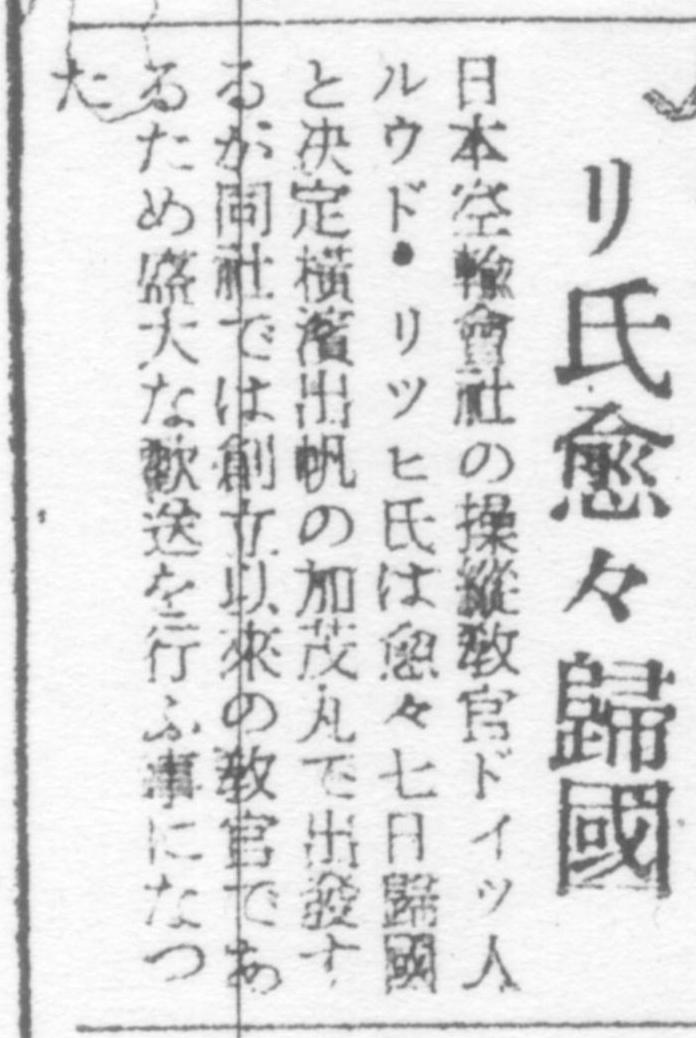 リ氏愈々歸國
日本空輸會社の操縱敎官ドイツ人
ルウド・リツヒ氏は愈々七日歸國
と决定横濱出帆の加茂丸で出發す
るが同社では創立以來の敎官であ
るため盛大な歡送を行ふ事になつ
た